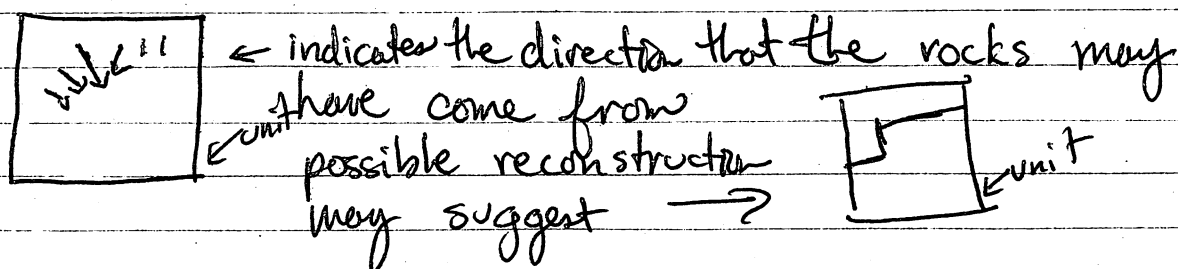 ← indicates the direction that the rocks may
have come from
unit
possible reconstruction
may suggest →
unit